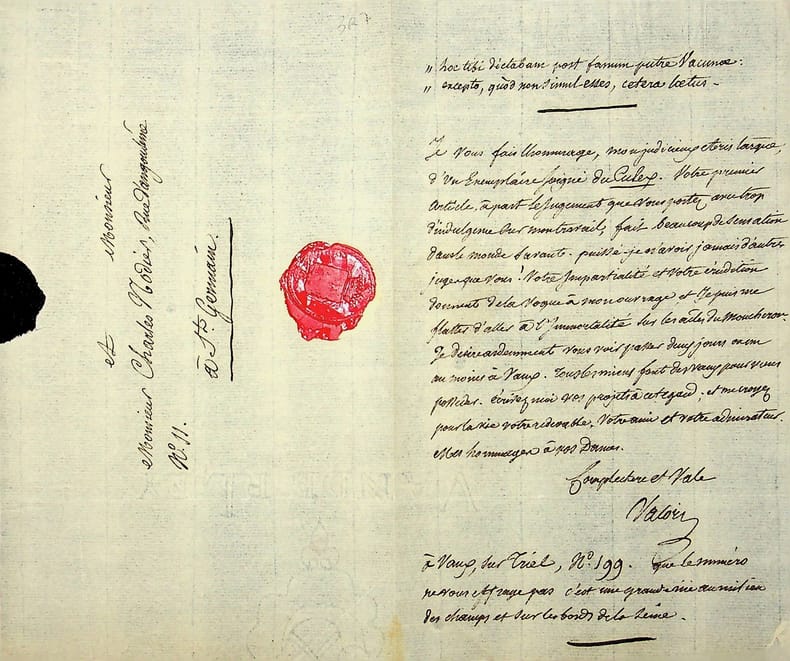 3R7
à Monsieur
et
Monsieur Charles Nodier, Rue d'angoulême
N.º 11.
à St. Germain.
„ hoc tibi dictabam post fanum putre Vacunæ:
„ excepto, quòd non simul esses, cetera lætus –
Je vous fais lhommage, mon judicieux et
d'un Exemplaire soigné du Culex. Votre premier
article, à part le jugement que vous portez avec trop
d'indulgence sur mon travail, fait beaucoup de sensation
dans le monde savant. puissé-je n'avoir jamais d'autre
juge que vous! Votre Impartialité et Votre érudition
donnent de la Vogue à mon ouvrage et Je puis me
flatter d'aller à l'Immortalité sur les ailes du Moucheron.
Je désire ardemment vous voir passer deux jours
au moins à Vaux. Tous les miens font des vœux pour vous
posseder. Écrivez moi vos projets à cet égard, et me croyez
pour la vie votre redevable, Votre ami et votre admirateur.
Mes hommages à vos Dames.
Complectere et Vale
Valori
à Vaux, sur Triel, N.º 199. que le numéro
ne vous effraye pas c'est une grande rue au milieu
des champs et sur les bords de la Seine.